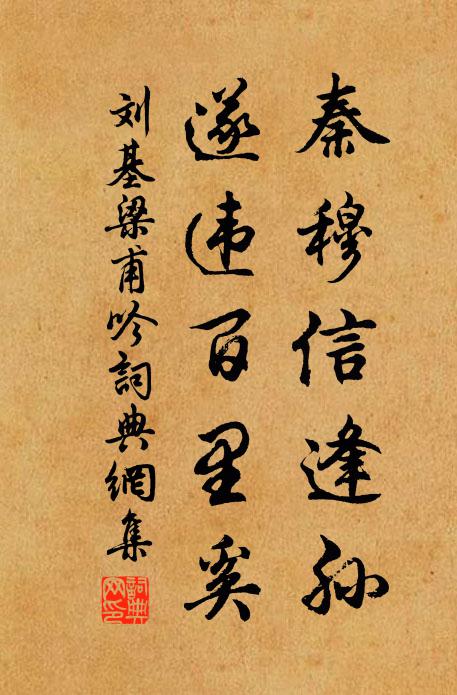 秦穆信逢孙
遂违百里奚
刘基梁甫吟詞典網集
詞典网印